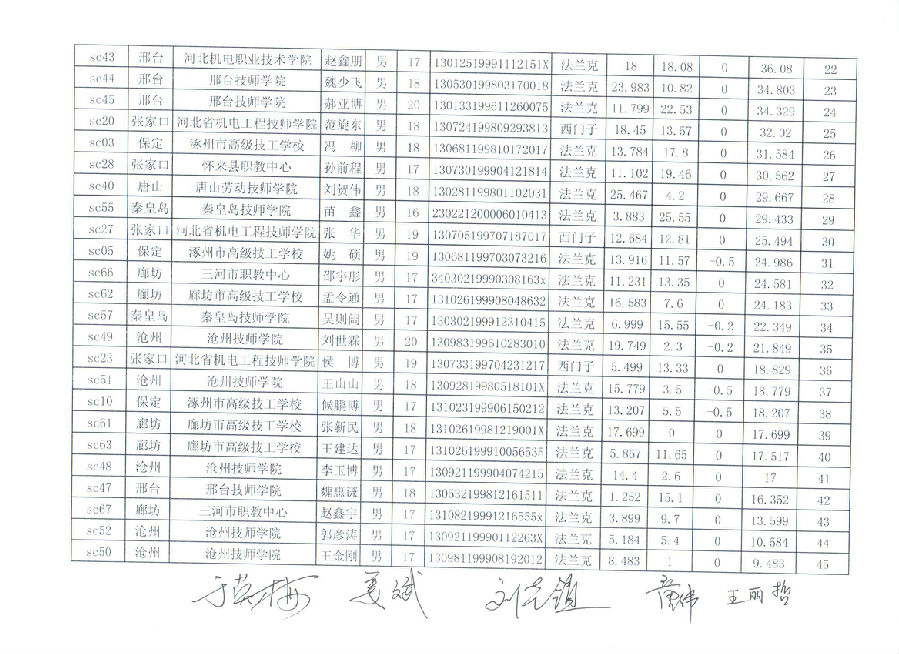 sc43 邢台 河北机电职业技术学院 赵鑫朋 男 17 13012519991112151X 法兰克 18 18.08 0 36.08 22
sc44 邢台 邢台技师学院 魏少飞 男 18 130530199803170018 法兰克 23.983 10.82 0 34.803 23
sc45 邢台 邢台技师学院 郝亚博 男 20 法兰克 11.799 22.53 0 34.329 24
sc20 张家口 河北省机电工程技师学院 范旋东 男 18 130724199809293813 西门子 18.45 13.57 0 32.02 25
sc03 保定 涿州市高级技工学校 冯柳 男 18 130681199810172017 法兰克 13.784 17.8 0 31.584 26
sc28 张家口 怀来县职教中心 孙前程 男 17 130730199904121814 法兰克 11.102 19.46 0 30.562 27
sc40 唐山 唐山劳动技师学院 刘贺伟 男 18 130281199801102031 法兰克 25.467 4.2 0 29.667 28
sc55 秦皇岛 秦皇岛技师学院 苗鑫 男 16 230221200006010413 法兰克 3.883 25.55 0 29.433 29
sc27 张家口 河北省机电工程技师学院 张华 男 19 130705199707187017 西门子 12.684 12.81 0 25.494 30
sc05 保定 涿州市高级技工学校 姚硕 男 19 130681199703073216 法兰克 13.916 11.57 -0.5 24.986 31
sc66 廊坊 三河市职教中心 邵宇彤 男 17 34030219990308163x 法兰克 11.231 13.35 0 24.581 32
sc62 廊坊 廊坊市高级技工学校 孟令通 男 17 131026199908048632 法兰克 16.583 7.6 0 24.183 33
sc57 秦皇岛 秦皇岛技师学院 吴则阔 男 17 130302199912310415 法兰克 6.999 15.55 -0.2 22.349 34
sc49 沧州 沧州技师学院 刘世霖 男 20 130983199610283010 法兰克 19.749 2.3 -0.2 21.849 35
sc23 张家口 河北省机电工程技师学院 侯博 男 19 130733199704231217 西门子 5.499 13.33 0 18.829 36
sc51 沧州 沧州技师学院 王山山 男 18 13092819980518101X 法兰克 15.779 3.5 -0.5 18.779 37
sc10 保定 涿州市高级技工学校 候鹏博 男 17 131023199906150212 法兰克 13.207 5.5 -0.5 18.207 38
sc61 廊坊 廊坊市高级技工学校 张新民 男 18 13102619981219001X 法兰克 17.699 0 0 17.699 39
sc63 廊坊 廊坊市高级技工学校 王建达 男 17 131026199910056535 法兰克 5.867 11.65 0 17.517 40
sc48 沧州 沧州技师学院 李玉博 男 17 130921199904074215 法兰克 14.4 2.6 0 17 41
sc47 邢台 邢台技师学院 魏思谦 男 18 130532199812161511 法兰克 1.252 15.1 0 16.352 42
sc67 廊坊 三河市职教中心 赵鑫宇 男 17 13108219991216555x 法兰克 3.899 9.7 0 13.599 43
sc52 沧州 沧州技师学院 郭彦涛 男 17 13092119990112263X 法兰克 5.184 5.4 0 10.584 44
sc50 沧州 沧州技师学院 王金刚 男 17 130981199908192012 法兰克 8.483 1 0 9.483 45
于英梅 夏斌 王丽哲